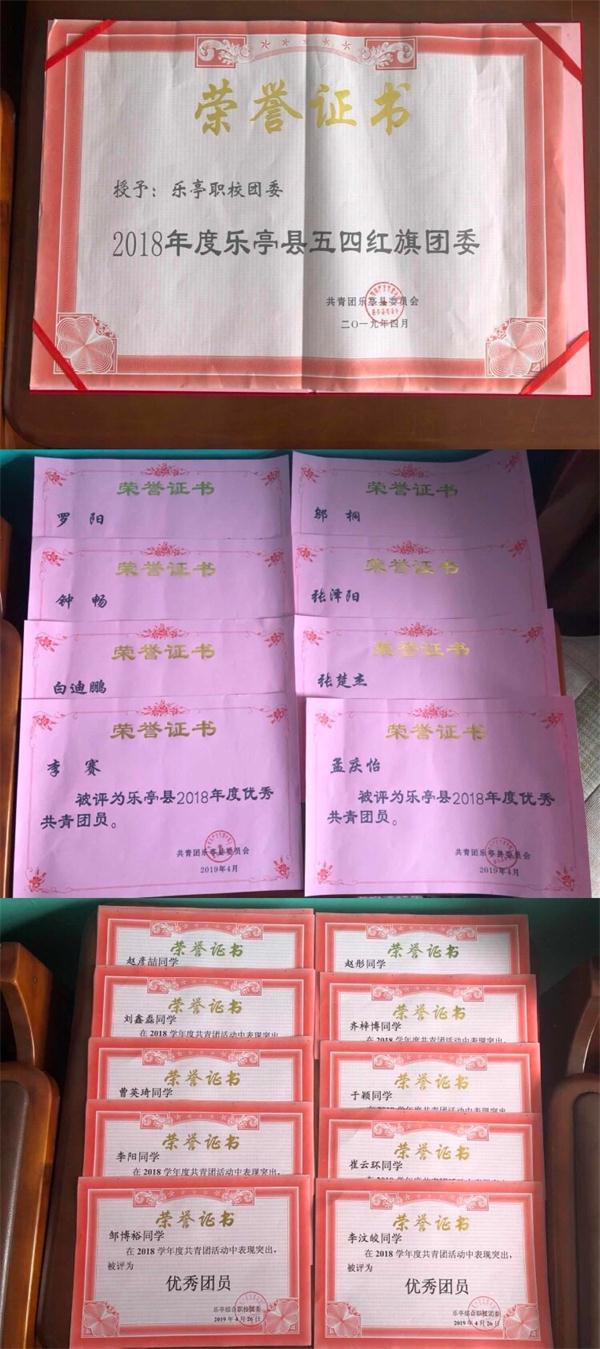 荣誉证书
授予：乐亭职校团委
2018年度乐亭县五四红旗团委
共青团乐亭县委员会
二〇一九年四月
荣誉证书
罗 阳
荣誉证书
邬 桐
荣誉证书
钟 畅
荣誉证书
张泽阳
荣誉证书
白迪鹏
荣誉证书
张楚杰
荣誉证书
李 赛
被评为乐亭县2018年度优秀
共青团员。
共青团乐亭县委员会
2019年4月
荣誉证书
孟庆怡
被评为乐亭县2018年度优秀
共青团员。
共青团乐亭县委员会
2019年4月
荣誉证书
赵彦喆同学
荣誉证书
赵彤同学
荣誉证书
刘鑫磊同学
在2018学年度共青团活动中表现突出，
荣誉证书
齐梓博同学
在2018学年度共青团活动中表现突出，
荣誉证书
曹英琦同学
荣誉证书
于颖同学
在2018学年度共青团活动中表现突出，
荣誉证书
李阳同学
在2018学年度共青团活动中表现突出，
荣誉证书
崔云环同学
在2018学年度共青团活动中表现突出，
荣誉证书
邹博裕同学
在2018学年度共青团活动中表现突出，
被评为
优秀团员
乐亭综合职校团委
2019年4月26日
荣誉证书
李汶皎同学
在2018学年度共青团活动中表现突出，
被评为
优秀团员
乐亭综合职校团委
2019年4月26日